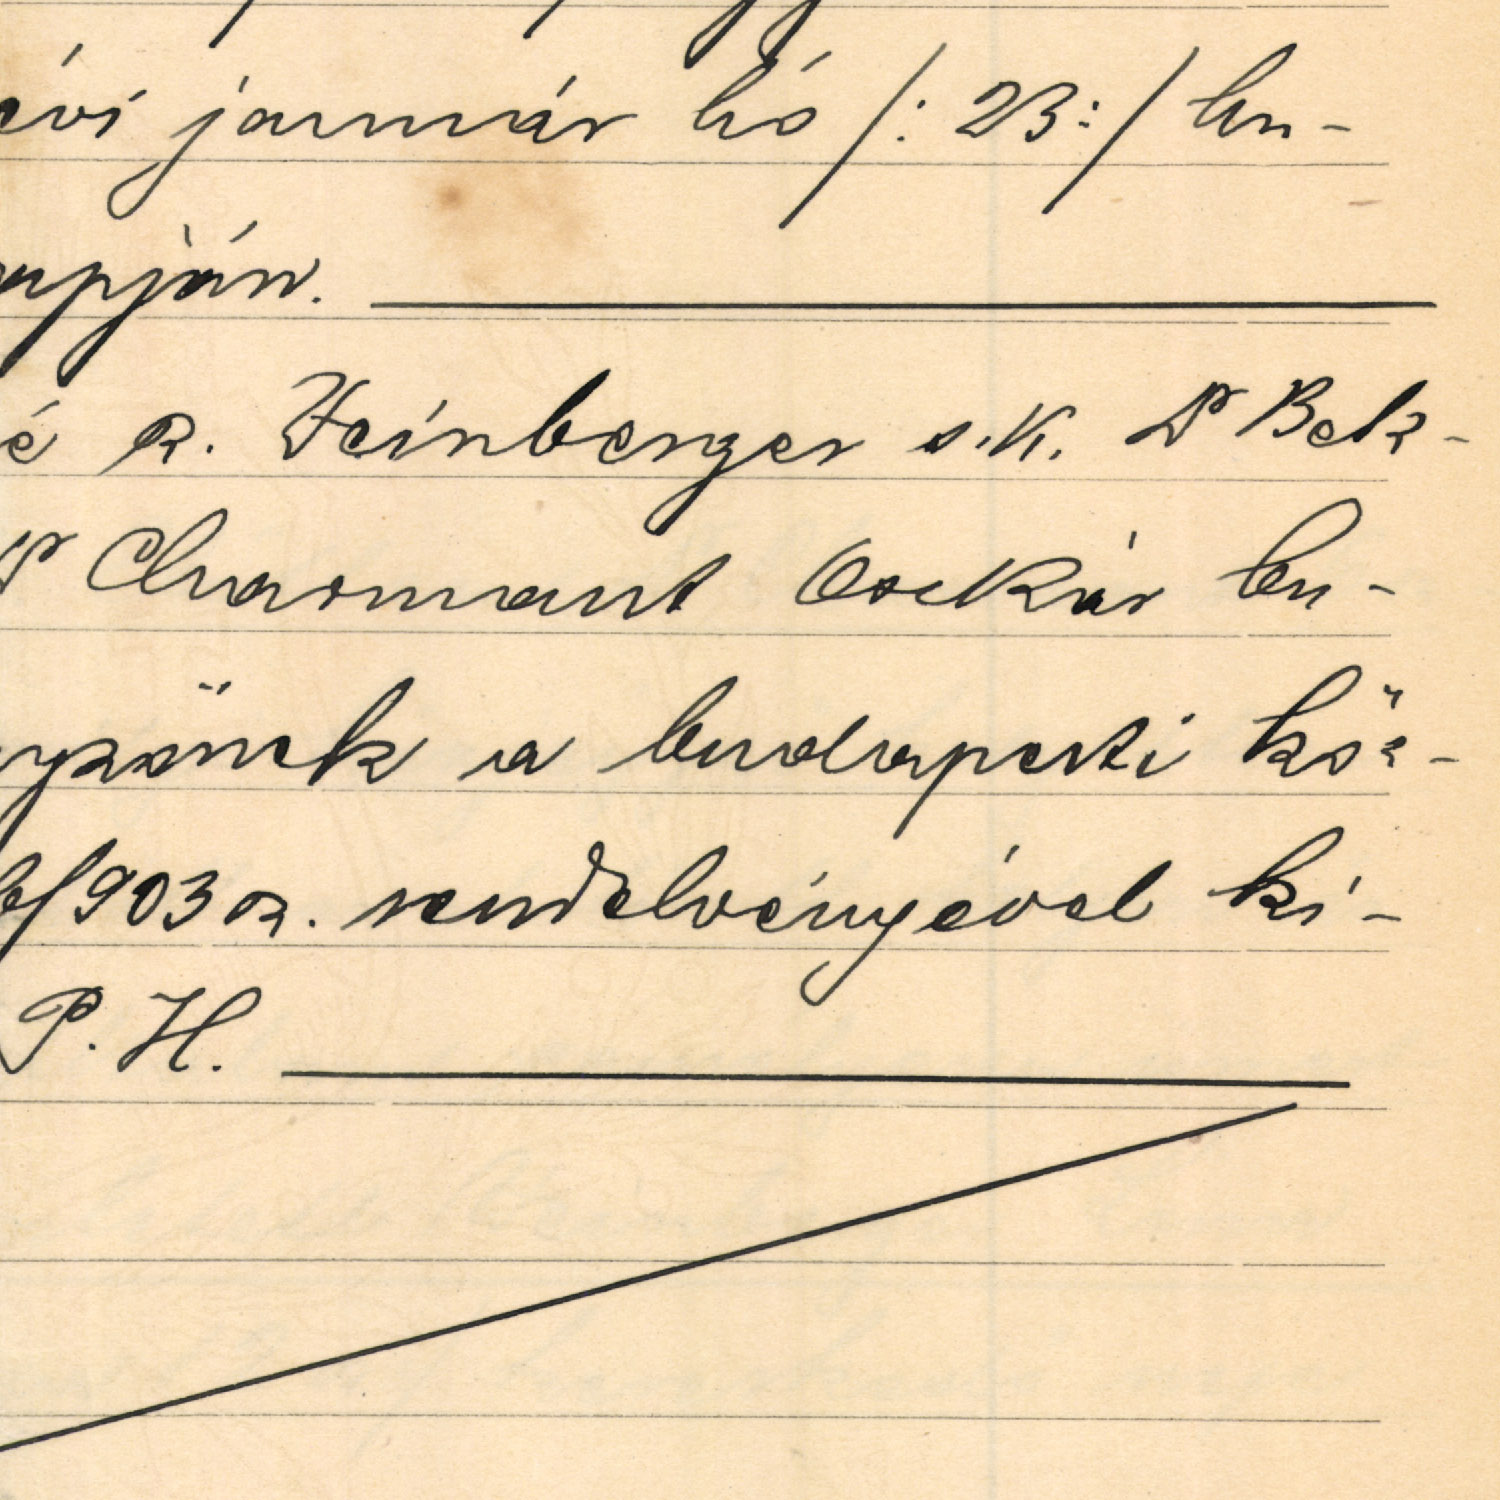 évi január hó /: 23 :/ hu-
napján.
é R. Weinberger s.k. Dr Bek-
Dr Charmant Oszkár bu-
yzőnek a budapesti köz-
/903 sz. rendelvényével ki-
P. H.